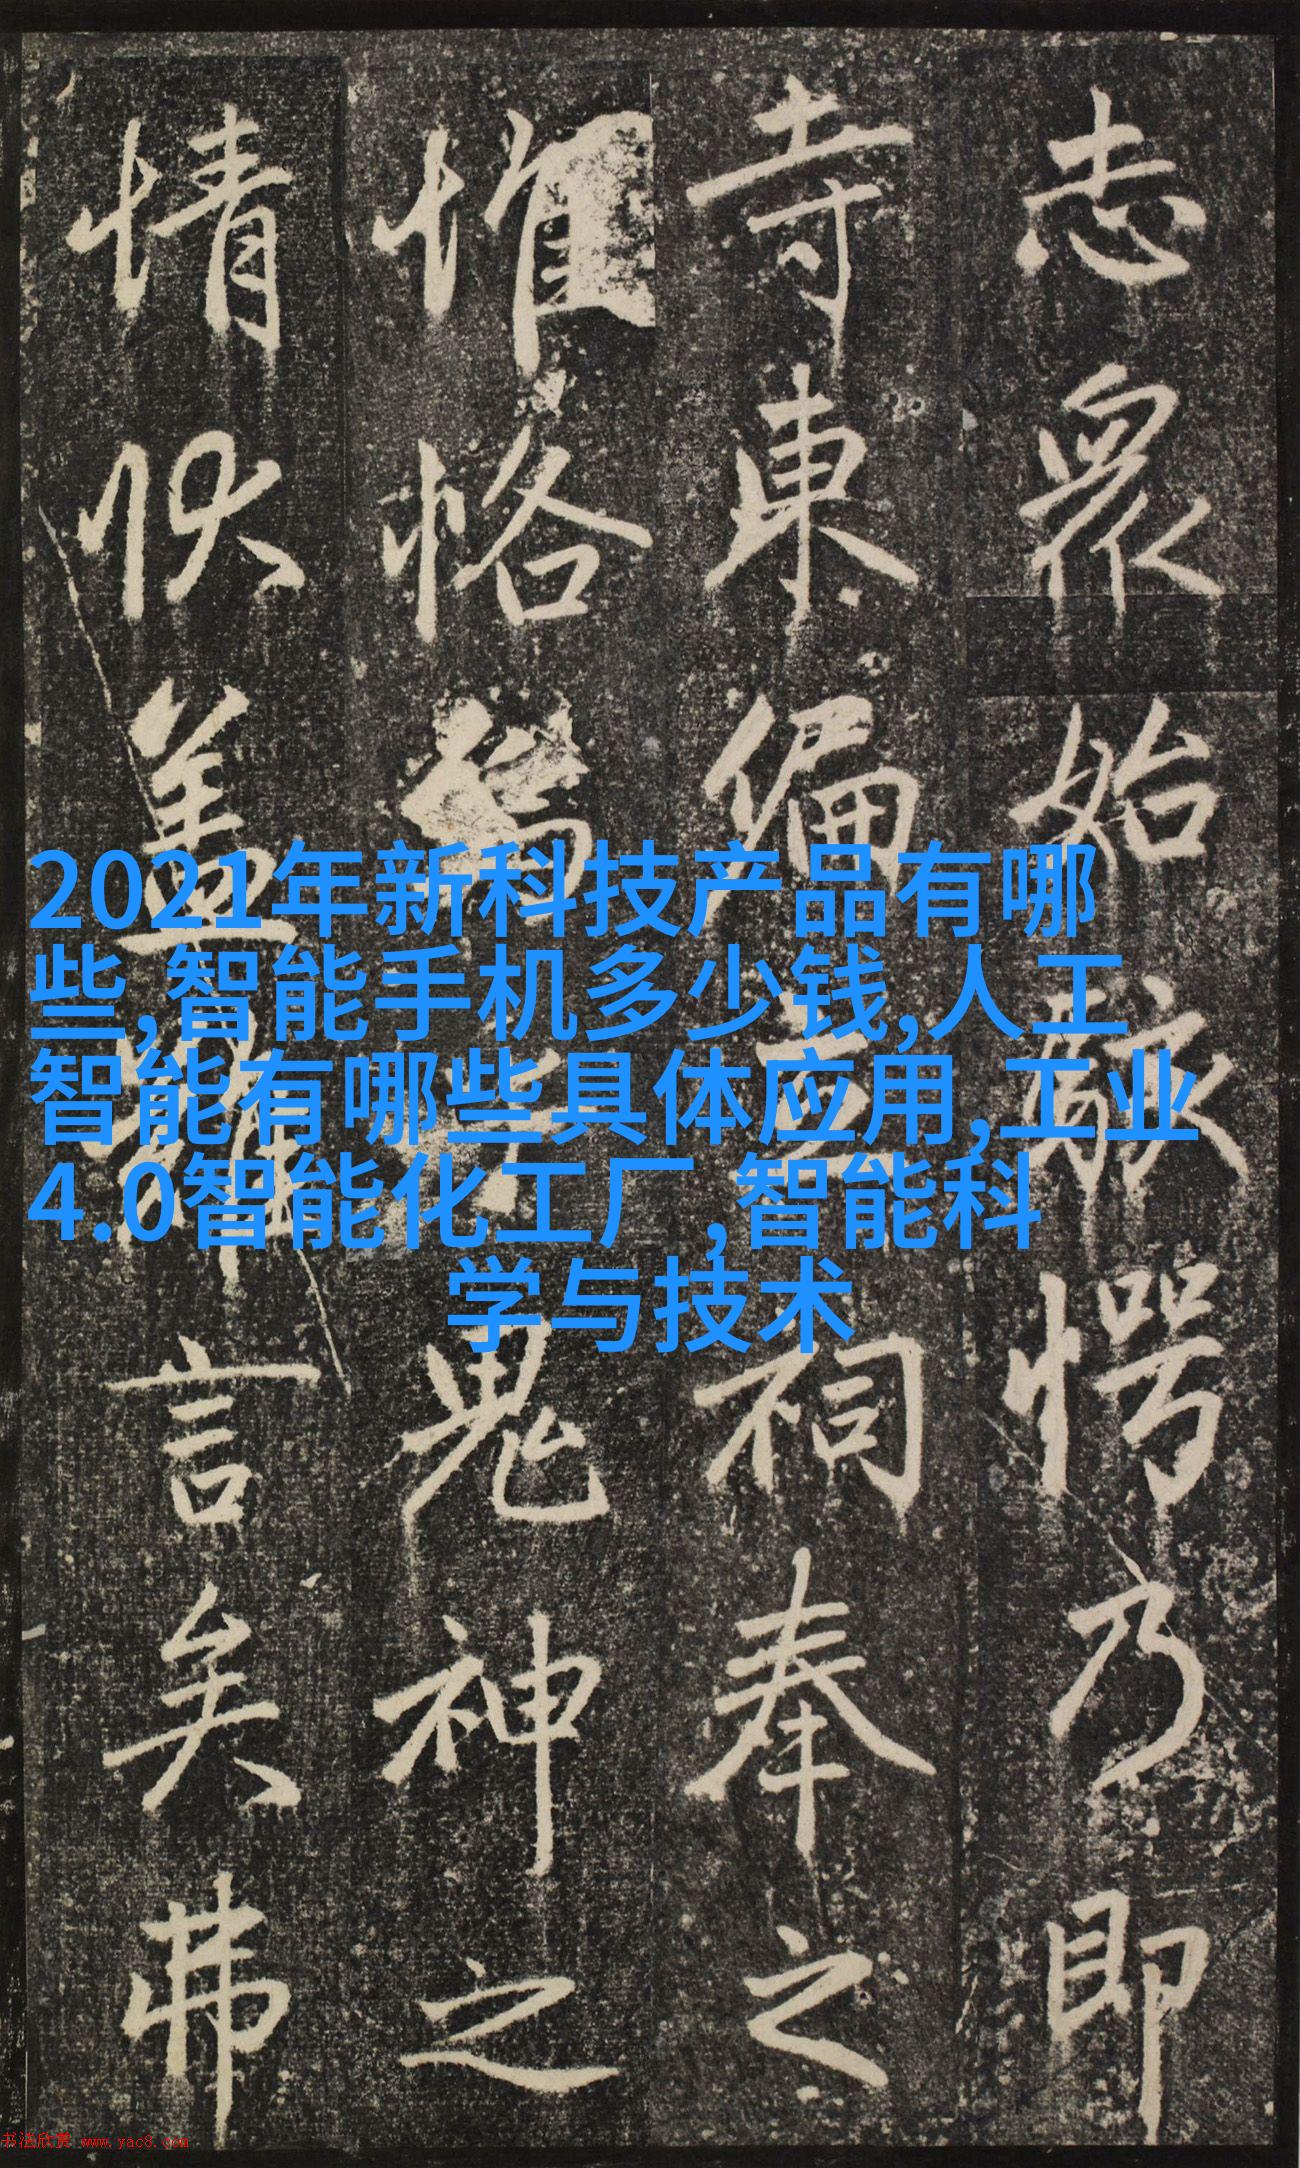 志眾始駭愕乃即
寺東偏立祠奉之
惟恪鬼神之
情狀蓋難言矣弗
2021年新科技产品有哪
些,智能手机多少钱,人工
智能有哪些具体应用,工业
4.0智能化工厂,智能科
学与技术
书法欣赏 www.yac8.com